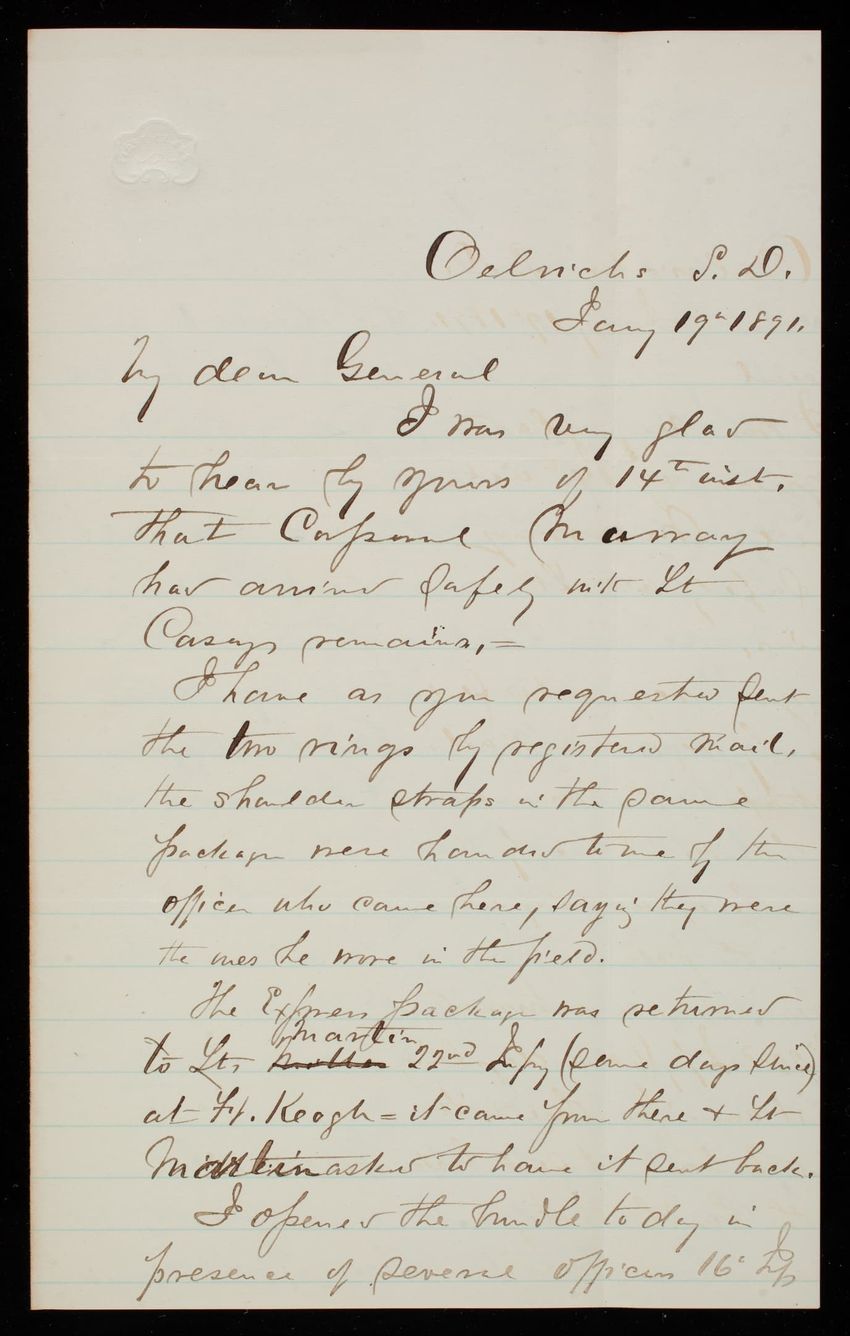 Oelrichs S. D.
Jany 19th 1891.
My dear General
I was very glad
to hear by yours of 14th inst.
that Corporal Murray
had arrived safely with Lt
Caseys remains,=
I have as you requested sent
the two rings by registered mail,
the shoulder straps in the same
package were handed to me by the
officer who came here, saying they were
the ones he wore in the field.
The Express package was returned
Martin
to Lt, 22nd Infy (some days since)
at Ft. Keogh = it came from there & Lt
Martin asked to have it sent back.
I opened the bundle today in
presence of several officers 16th Infy